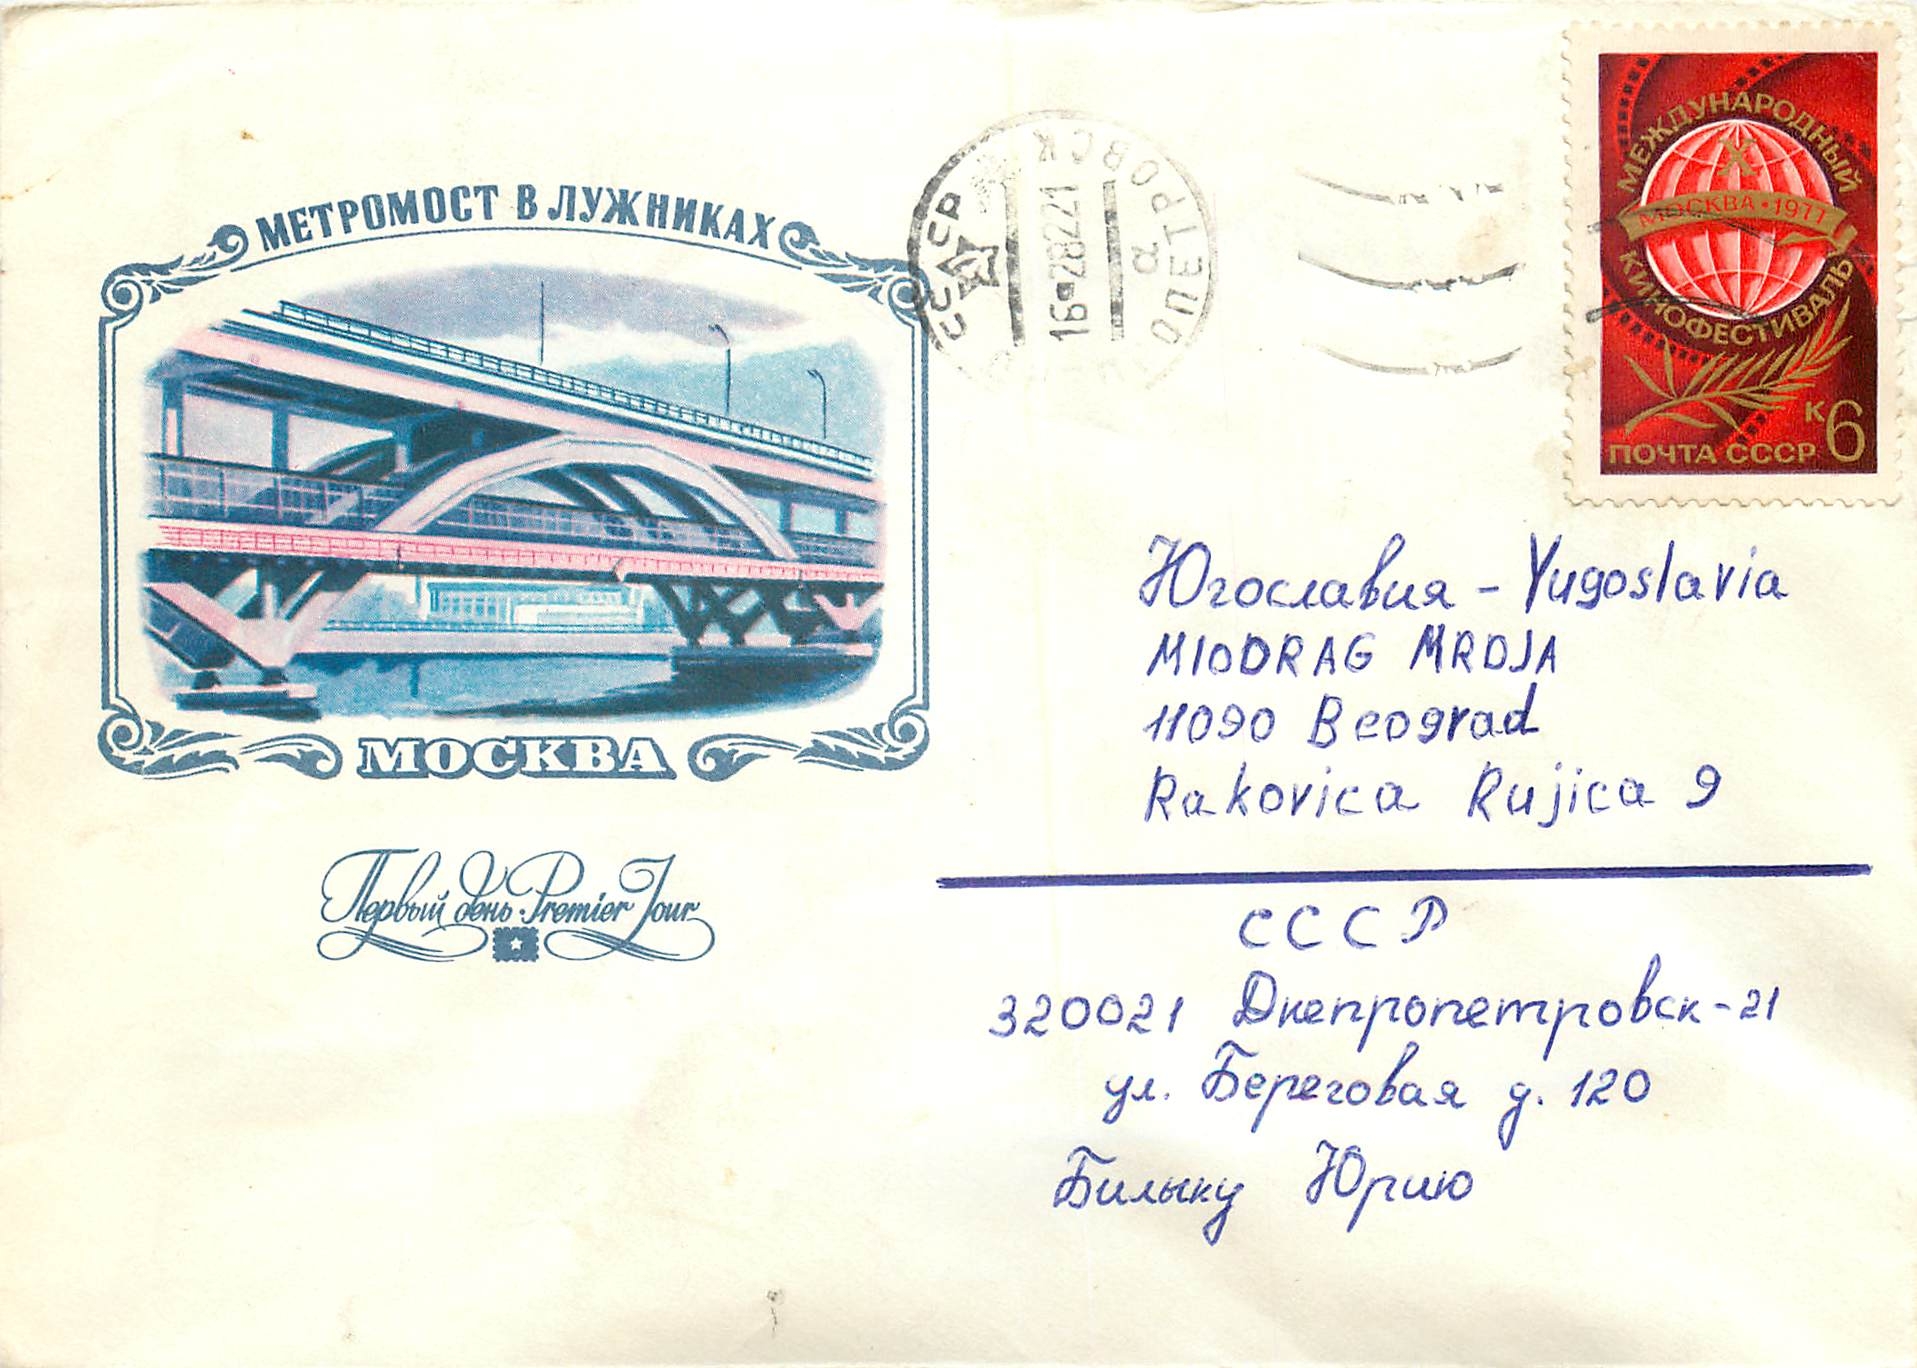 МЕТРОМОСТ В ЛУЖНИКАХ
МОСКВА
Первый день · Premier Jour
СССР
ДНЕПРОПЕТРОВСК
а
МЕЖДУНАРОДНЫЙ
X
МОСКВА·1977
КИНОФЕСТИВАЛЬ
к6
ПОЧТА СССР
Югославия - Yugoslavia
MIODRAG MRDJA
11090 Beograd
Rakovica Rujica 9
СССР
320021 Днепропетровск-21
ул. Береговая д. 120
Билыку Юрию